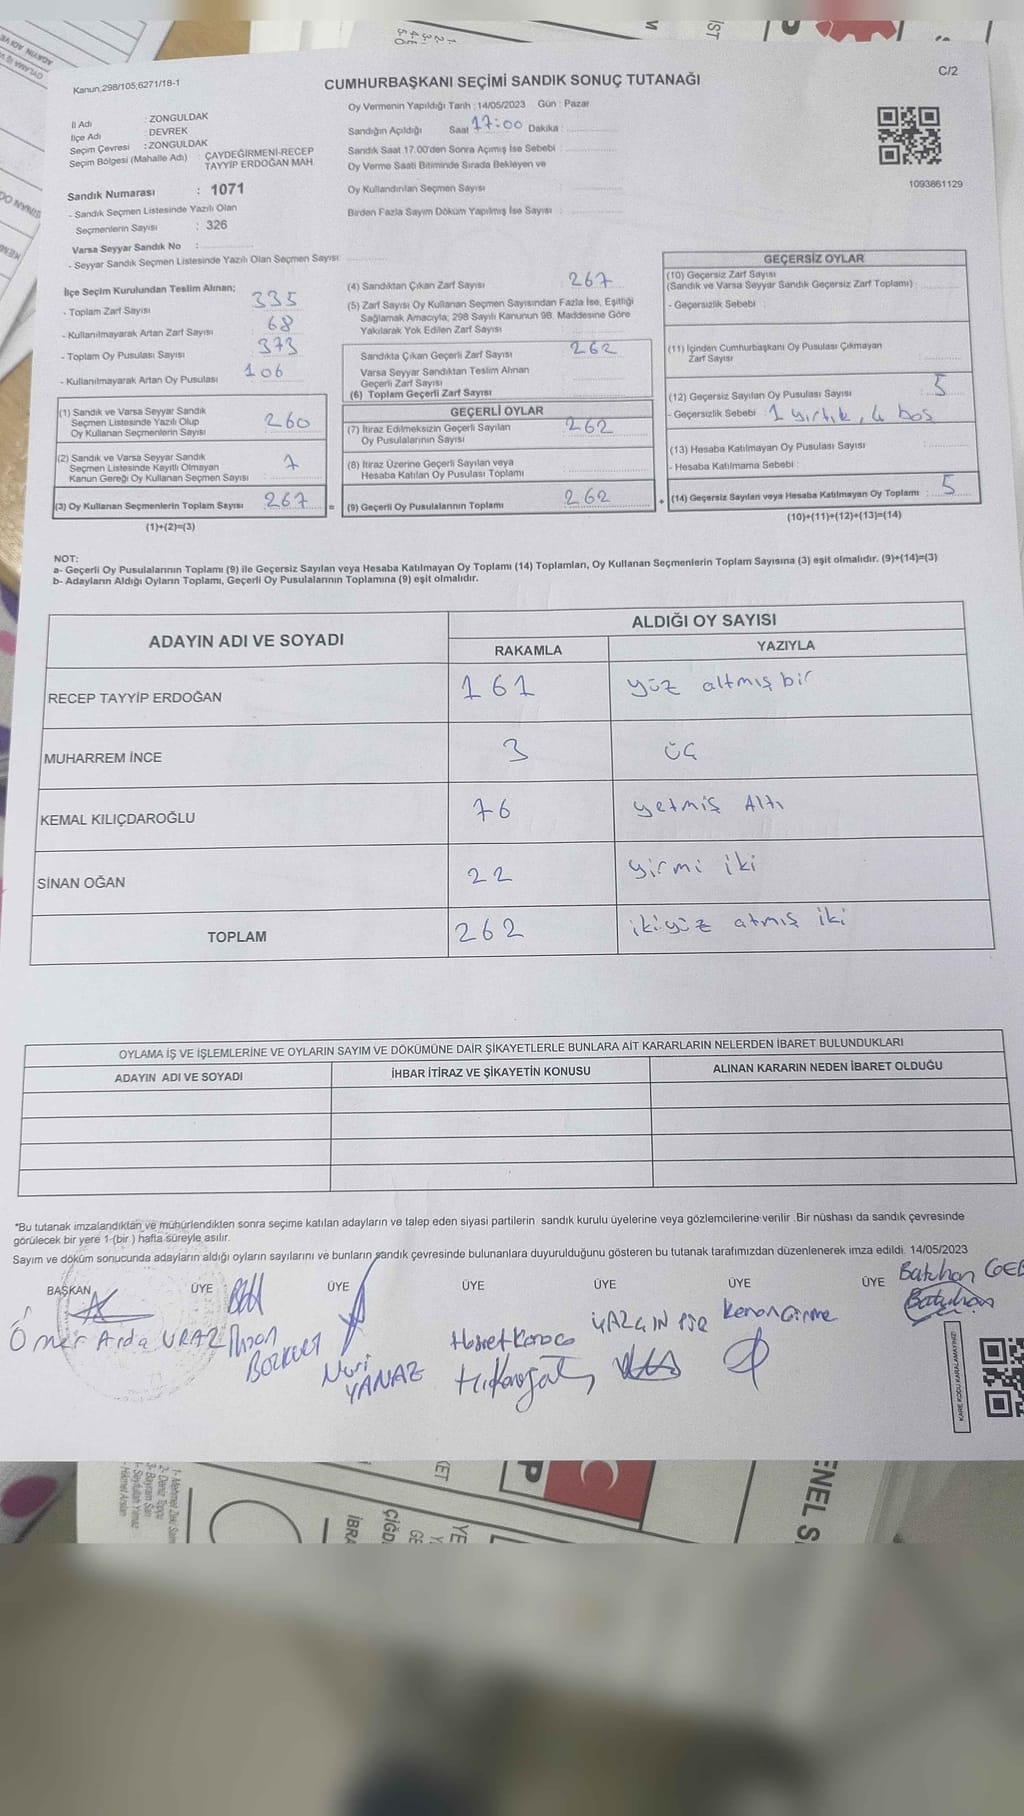 Kanun,298/105;6271/18-1
CUMHURBAŞKANI SEÇİMİ SANDIK SONUÇ TUTANAĞI
C/2
İl Adı : ZONGULDAK
İlçe Adı : DEVREK
Seçim Çevresi : ZONGULDAK
Seçim Bölgesi (Mahalle Adı) : ÇAYDEĞİRMENİ-RECEP
TAYYİP ERDOĞAN MAH.
Sandık Numarası : 1071
- Sandık Seçmen Listesinde Yazılı Olan
Seçmenlerin Sayısı : 326
Varsa Seyyar Sandık No :
- Seyyar Sandık Seçmen Listesinde Yazılı Olan Seçmen Sayısı:
Oy Vermenin Yapıldığı Tarih : 14/05/2023 Gün : Pazar
Sandığın Açıldığı Saat 17:00 Dakika :
Sandık Saat 17.00'den Sonra Açımış İse Sebebi :
Oy Verme Saati Bitiminde Sırada Bekleyen ve
Oy Kullandırılan Seçmen Sayısı
Birden Fazla Sayım Döküm Yapılmış İse Sayısı :
1093861129
İlçe Seçim Kurulundan Teslim Alınan;
- Toplam Zarf Sayısı 335
- Kullanılmayarak Artan Zarf Sayısı 68
- Toplam Oy Pusulası Sayısı 373
- Kullanılmayarak Artan Oy Pusulası 106
(1) Sandık ve Varsa Seyyar Sandık
Seçmen Listesinde Yazılı Olup
Oy Kullanan Seçmenlerin Sayısı 260
(2) Sandık ve Varsa Seyyar Sandık
Seçmen Listesinde Kayıtlı Olmayan
Kanun Gereği Oy Kullanan Seçmen Sayısı 7
(3) Oy Kullanan Seçmenlerin Toplam Sayısı 267 =
(1)+(2)=(3)
(4) Sandıktan Çıkan Zarf Sayısı 267
(5) Zarf Sayısı Oy Kullanan Seçmen Sayısından Fazla İse, Eşitliği
Sağlamak Amacıyla; 298 Sayılı Kanunun 98. Maddesine Göre
Yakılarak Yok Edilen Zarf Sayısı
Sandıkta Çıkan Geçerli Zarf Sayısı 262
Varsa Seyyar Sandıktan Teslim Alınan
Geçerli Zarf Sayısı
(6) Toplam Geçerli Zarf Sayısı
GEÇERLİ OYLAR
(7) İtiraz Edilmeksizin Geçerli Sayılan
Oy Pusulalarının Sayısı 262
(8) İtiraz Üzerine Geçerli Sayılan veya
Hesaba Katılan Oy Pusulası Toplamı
(9) Geçerli Oy Pusulalarının Toplamı 262 +
GEÇERSİZ OYLAR
(10) Geçersiz Zarf Sayısı
(Sandık ve Varsa Seyyar Sandık Geçersiz Zarf Toplamı)
- Geçersizlik Sebebi :
(11) İçinden Cumhurbaşkanı Oy Pusulası Çıkmayan
Zarf Sayısı
(12) Geçersiz Sayılan Oy Pusulası Sayısı 5
- Geçersizlik Sebebi : 1 yırtık, 4 boş
(13) Hesaba Katılmayan Oy Pusulası Sayısı
- Hesaba Katılmama Sebebi :
(14) Geçersiz Sayılan veya Hesaba Katılmayan Oy Toplamı : 5
(10)+(11)+(12)+(13)=(14)
NOT:
a- Geçerli Oy Pusulalarının Toplamı (9) ile Geçersiz Sayılan veya Hesaba Katılmayan Oy Toplamı (14) Toplamları, Oy Kullanan Seçmenlerin Toplam Sayısına (3) eşit olmalıdır. (9)+(14)=(3)
b- Adayların Aldığı Oyların Toplamı, Geçerli Oy Pusulalarının Toplamına (9) eşit olmalıdır.
ADAYIN ADI VE SOYADI
ALDIĞI OY SAYISI
RAKAMLA YAZIYLA
RECEP TAYYİP ERDOĞAN 161 yüz altmış bir
MUHARREM İNCE 3 üç
KEMAL KILIÇDAROĞLU 76 yetmiş Altı
SİNAN OĞAN 22 yirmi iki
TOPLAM 262 ikiyüz atmış iki
OYLAMA İŞ VE İŞLEMLERİNE VE OYLARIN SAYIM VE DÖKÜMÜNE DAİR ŞİKAYETLERLE BUNLARA AİT KARARLARIN NELERDEN İBARET BULUNDUKLARI
ADAYIN ADI VE SOYADI İHBAR İTİRAZ VE ŞİKAYETİN KONUSU ALINAN KARARIN NEDEN İBARET OLDUĞU
*Bu tutanak imzalandıktan ve mühürlendikten sonra seçime katılan adayların ve talep eden siyasi partilerin sandık kurulu üyelerine veya gözlemcilerine verilir .Bir nüshası da sandık çevresinde
görülecek bir yere 1 (bir ) hafta süreyle asılır.
Sayım ve döküm sonucunda adayların aldığı oyların sayılarını ve bunların sandık çevresinde bulunanlara duyurulduğunu gösteren bu tutanak tarafımızdan düzenlenerek imza edildi. 14/05/2023
BAŞKAN ÜYE ÜYE ÜYE ÜYE ÜYE ÜYE
Ömer Arda URAZ
BOZKURT
Nuri
YANAZ
Kenan Girme
Batuhan
Batuhan
KARE KODU KARALAMAYINIZ!
1- Mehmet Zeki
İBRA
ÇİĞD
ENEL S